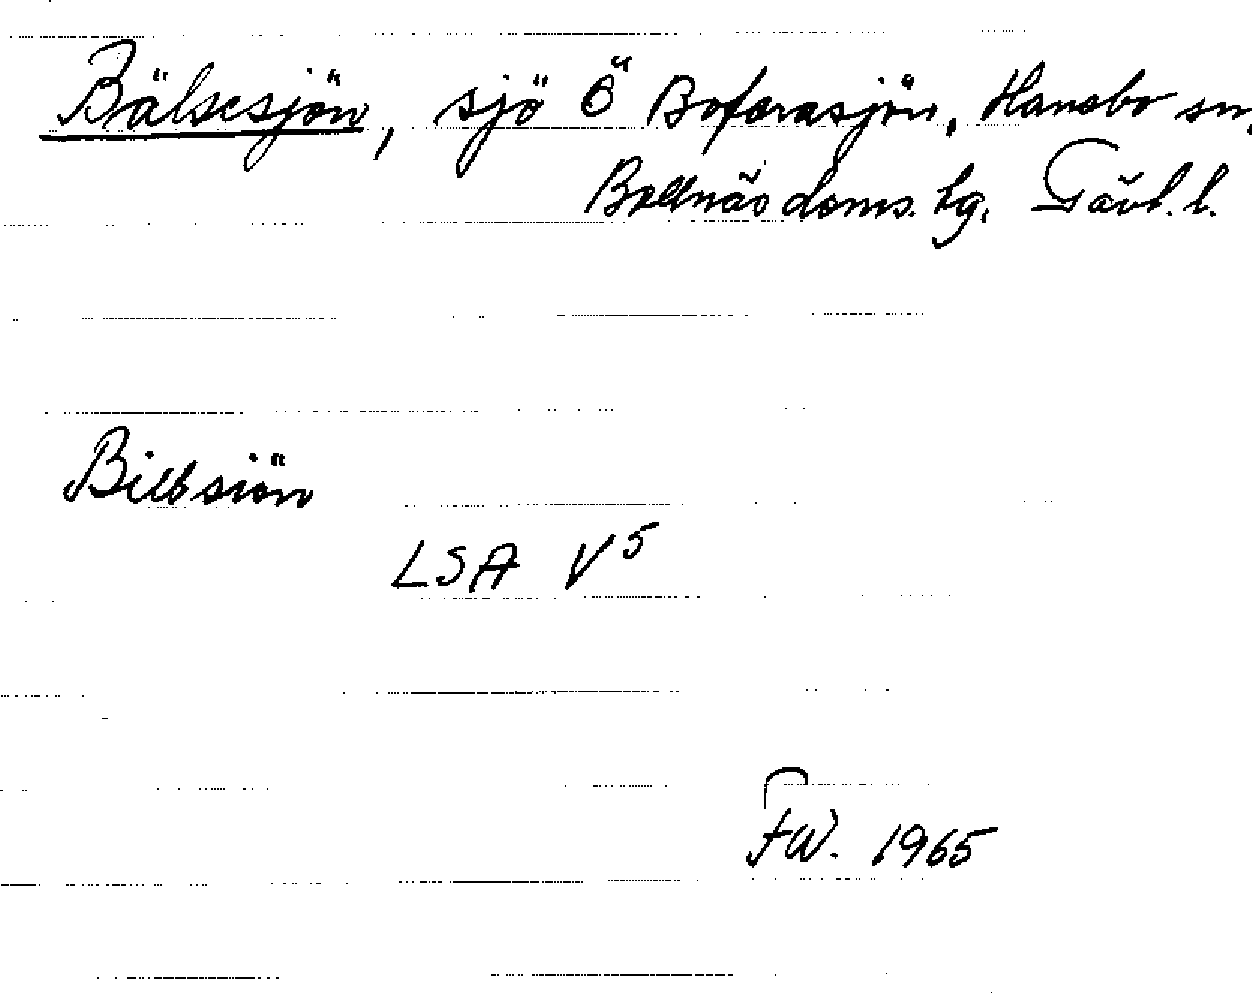 Bälsesjön, sjö Ö Bofarasjön, Hanebo sn,
Bollnäs doms. tg. Gävl. l.
Billsiön
LSA V5
FW. 1965